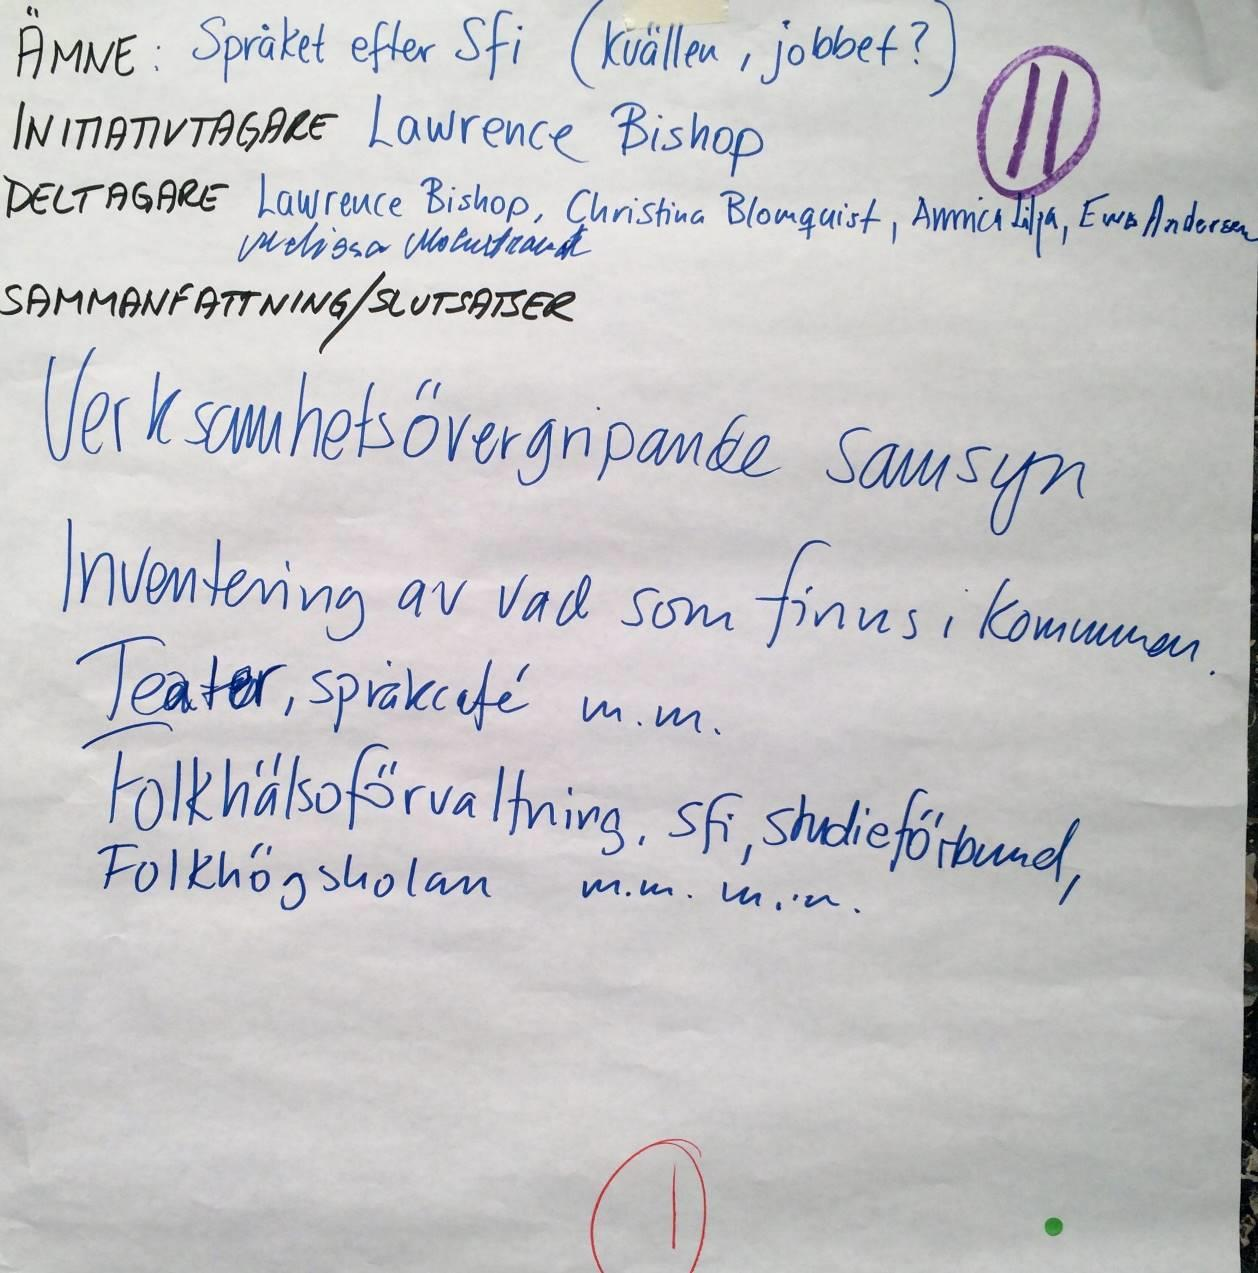 ÄMNE: Språket efter Sfi (kvällen, jobbet?)
11
INITIATIVTAGARE Lawrence Bishop
DELTAGARE Lawrence Bishop, Christina Blomquist, Annica Lilja, Ewa Andersen
Melissa
SAMMANFATTNING/SLUTSATSER
Verksamhetsövergripande samsyn
Inventering av vad som finns i kommunen.
Teater, språkcafé m.m.
Folkhälsoförvaltning, sfi, studieförbund,
Folkhögskolan m.m. m.m.
1